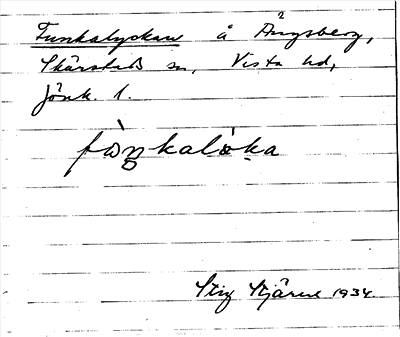 Funkalyckan å Ängsberg,
Skärstads sn, Vista hd,
Jönk. l.
fàŋkalỳka
Stig Stjärne 1934.